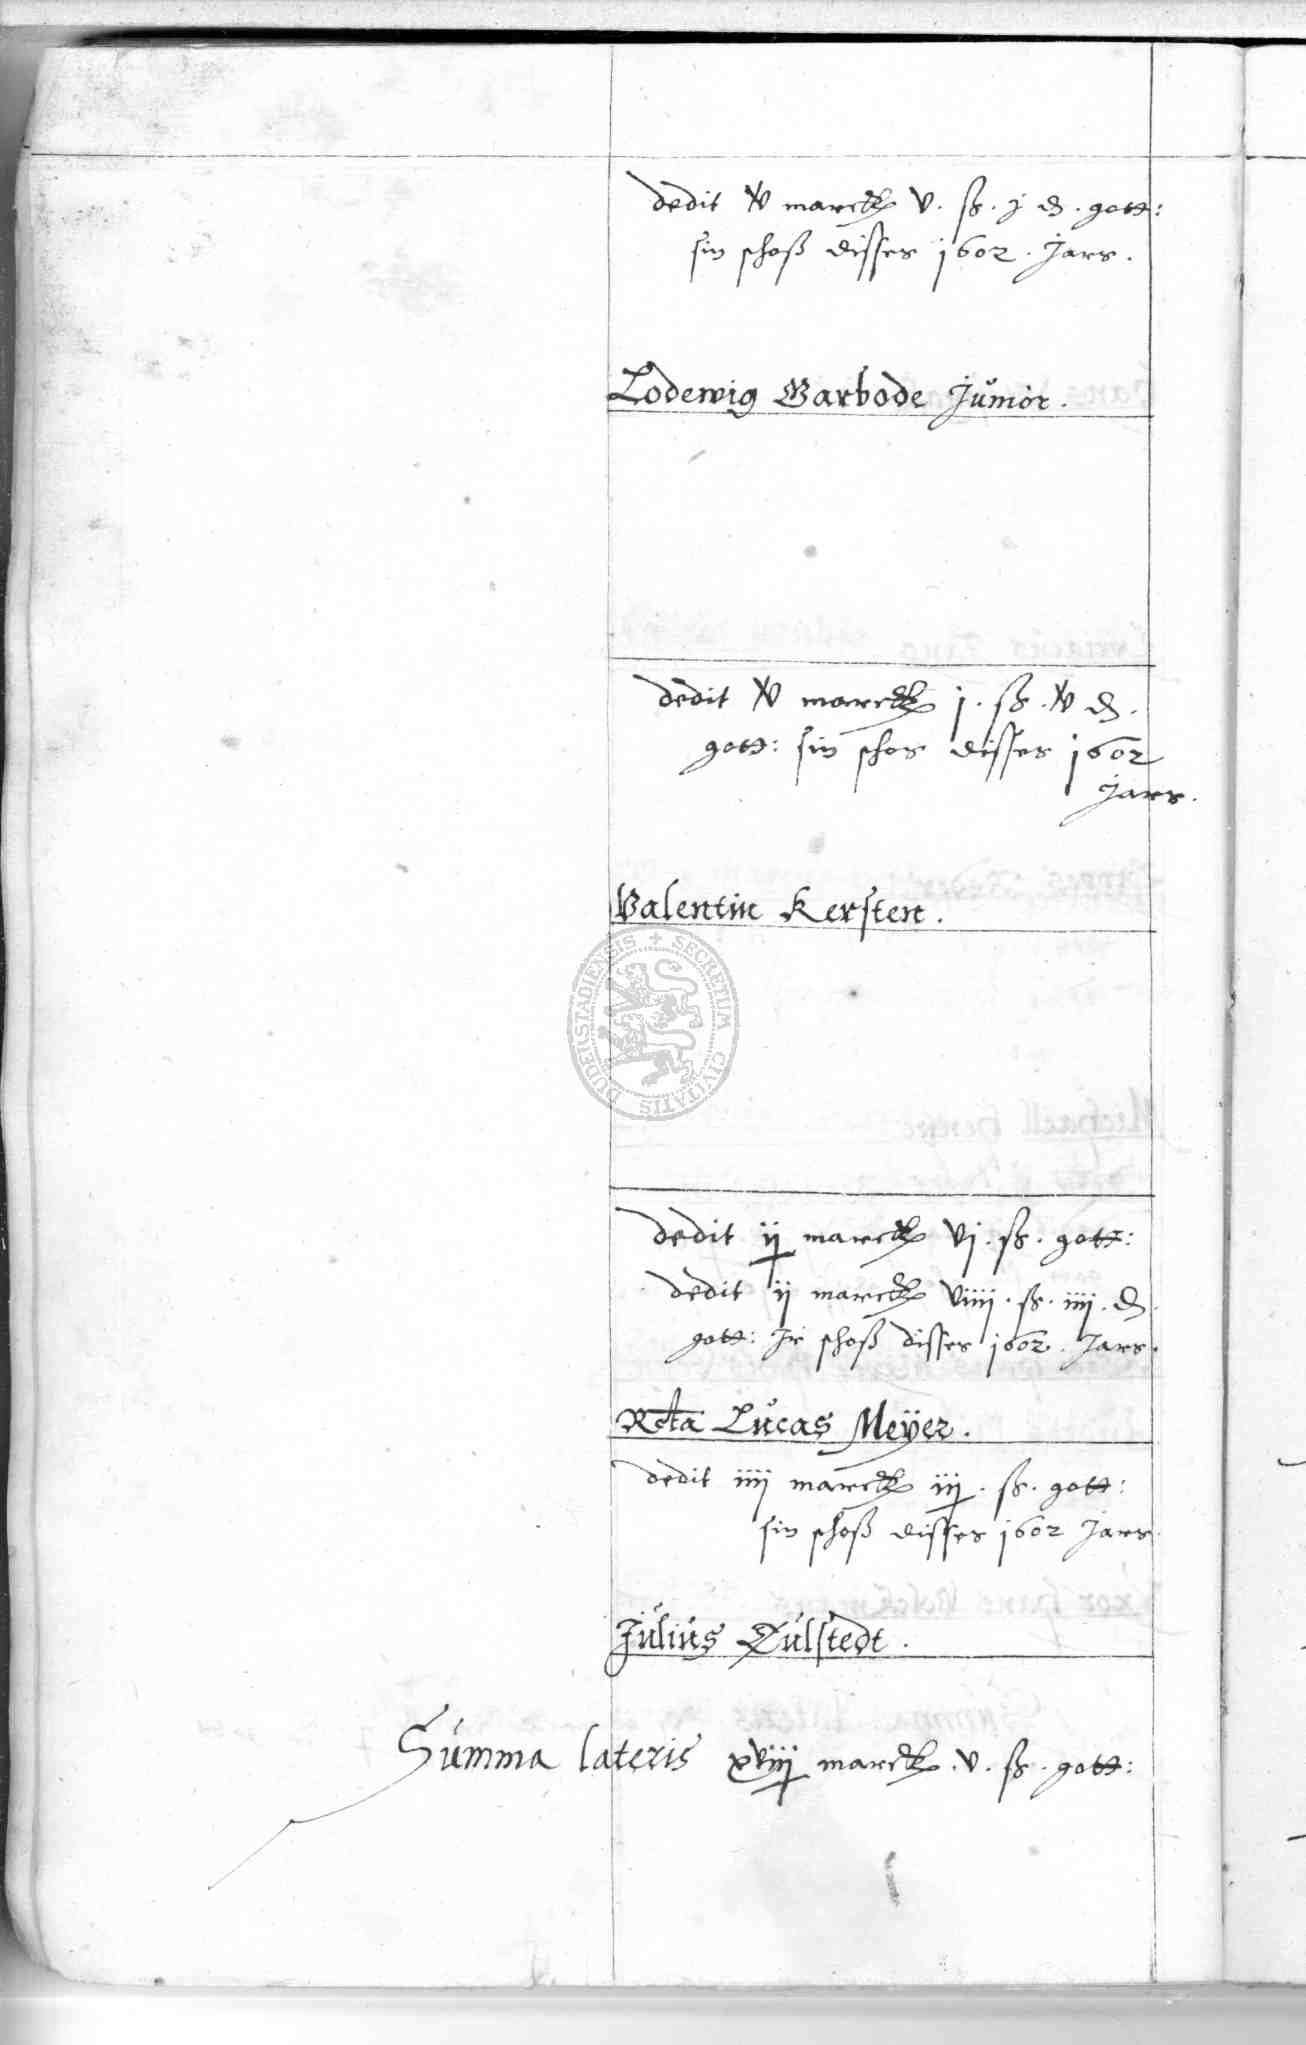 dedit v marck v. ß. j d. gott:
sin schoß disses 1602. Jars.
Lodewig Barbode Junior.
dedit v marck j. ß. v d.
gott: sin schos disses 1602
Jars.
Valentin Kersten.
SECRETUM CIVITATIS DUDERSTADIENSIS
dedit ij marck vj. ß. gott:
dedit ij marck viiij. ß. iiij. d
gott: Jr schoß disses 1602. Jars.
Rcta Lucas Meÿer.
dedit iiij marck iij. ß. gott:
sin schoß disses 1602 Jars
Julius Culstedt.
Summa lateris xviij marck. v. ß. gott: